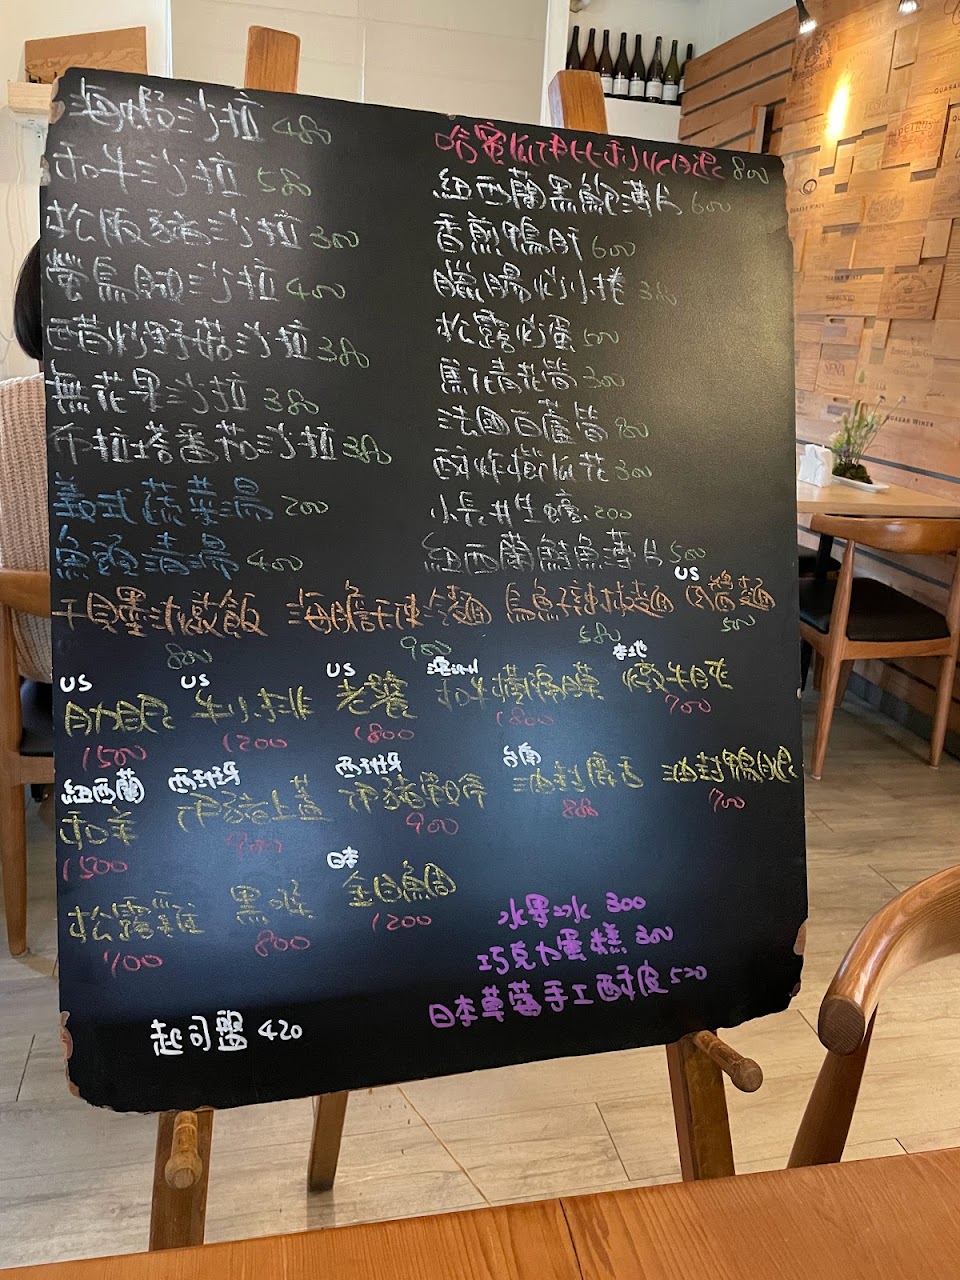 海鮮沙拉 480
和牛沙拉 580
松阪豬沙拉 300
螢烏賊沙拉 400
醋炒野菇沙拉 380
無花果沙拉 380
布拉塔番茄沙拉 380
義式蔬菜湯 200
魚頭清湯 400
哈蜜瓜伊比利火腿 800
紐西蘭黑鮑薄片 600
香煎鴨肝 600
臘腸炒小捲 380
松露炒蛋 500
500
法國白蘆筍 800
酥炸櫛瓜花 300
小長井生蠔 200
紐西蘭鮭魚薄片 500
干貝墨汁燉飯 800
海膽天使冷麵 900
烏魚子辣拌麵 580
US
肉醬麵 500
US
肋眼 1500
US
牛小排 1200
US
老饕 1800
澳洲
和牛 1800
本地
燉牛 700
紐西蘭
和羊 1500
西班牙
伊豬上蓋 900
西班牙
伊豬 900
台南
油封 800
油封鴨腿 700
松露雞 700
黑喉 800
日本
金目鯛 1200
水果冰 300
巧克力蛋糕 300
日本草莓手工酥皮 520
起司盤 420